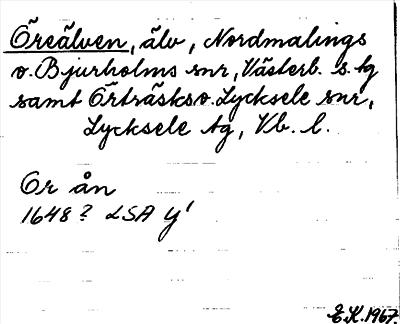 Öreälven, älv, Nordmalings
o. Bjurholms snr, Västerb. s. tg
samt Örträsks o. Lycksele snr,
Lycksele tg, Vb. l.
Or ån
1648? LSA y¹
E.K. 1967.